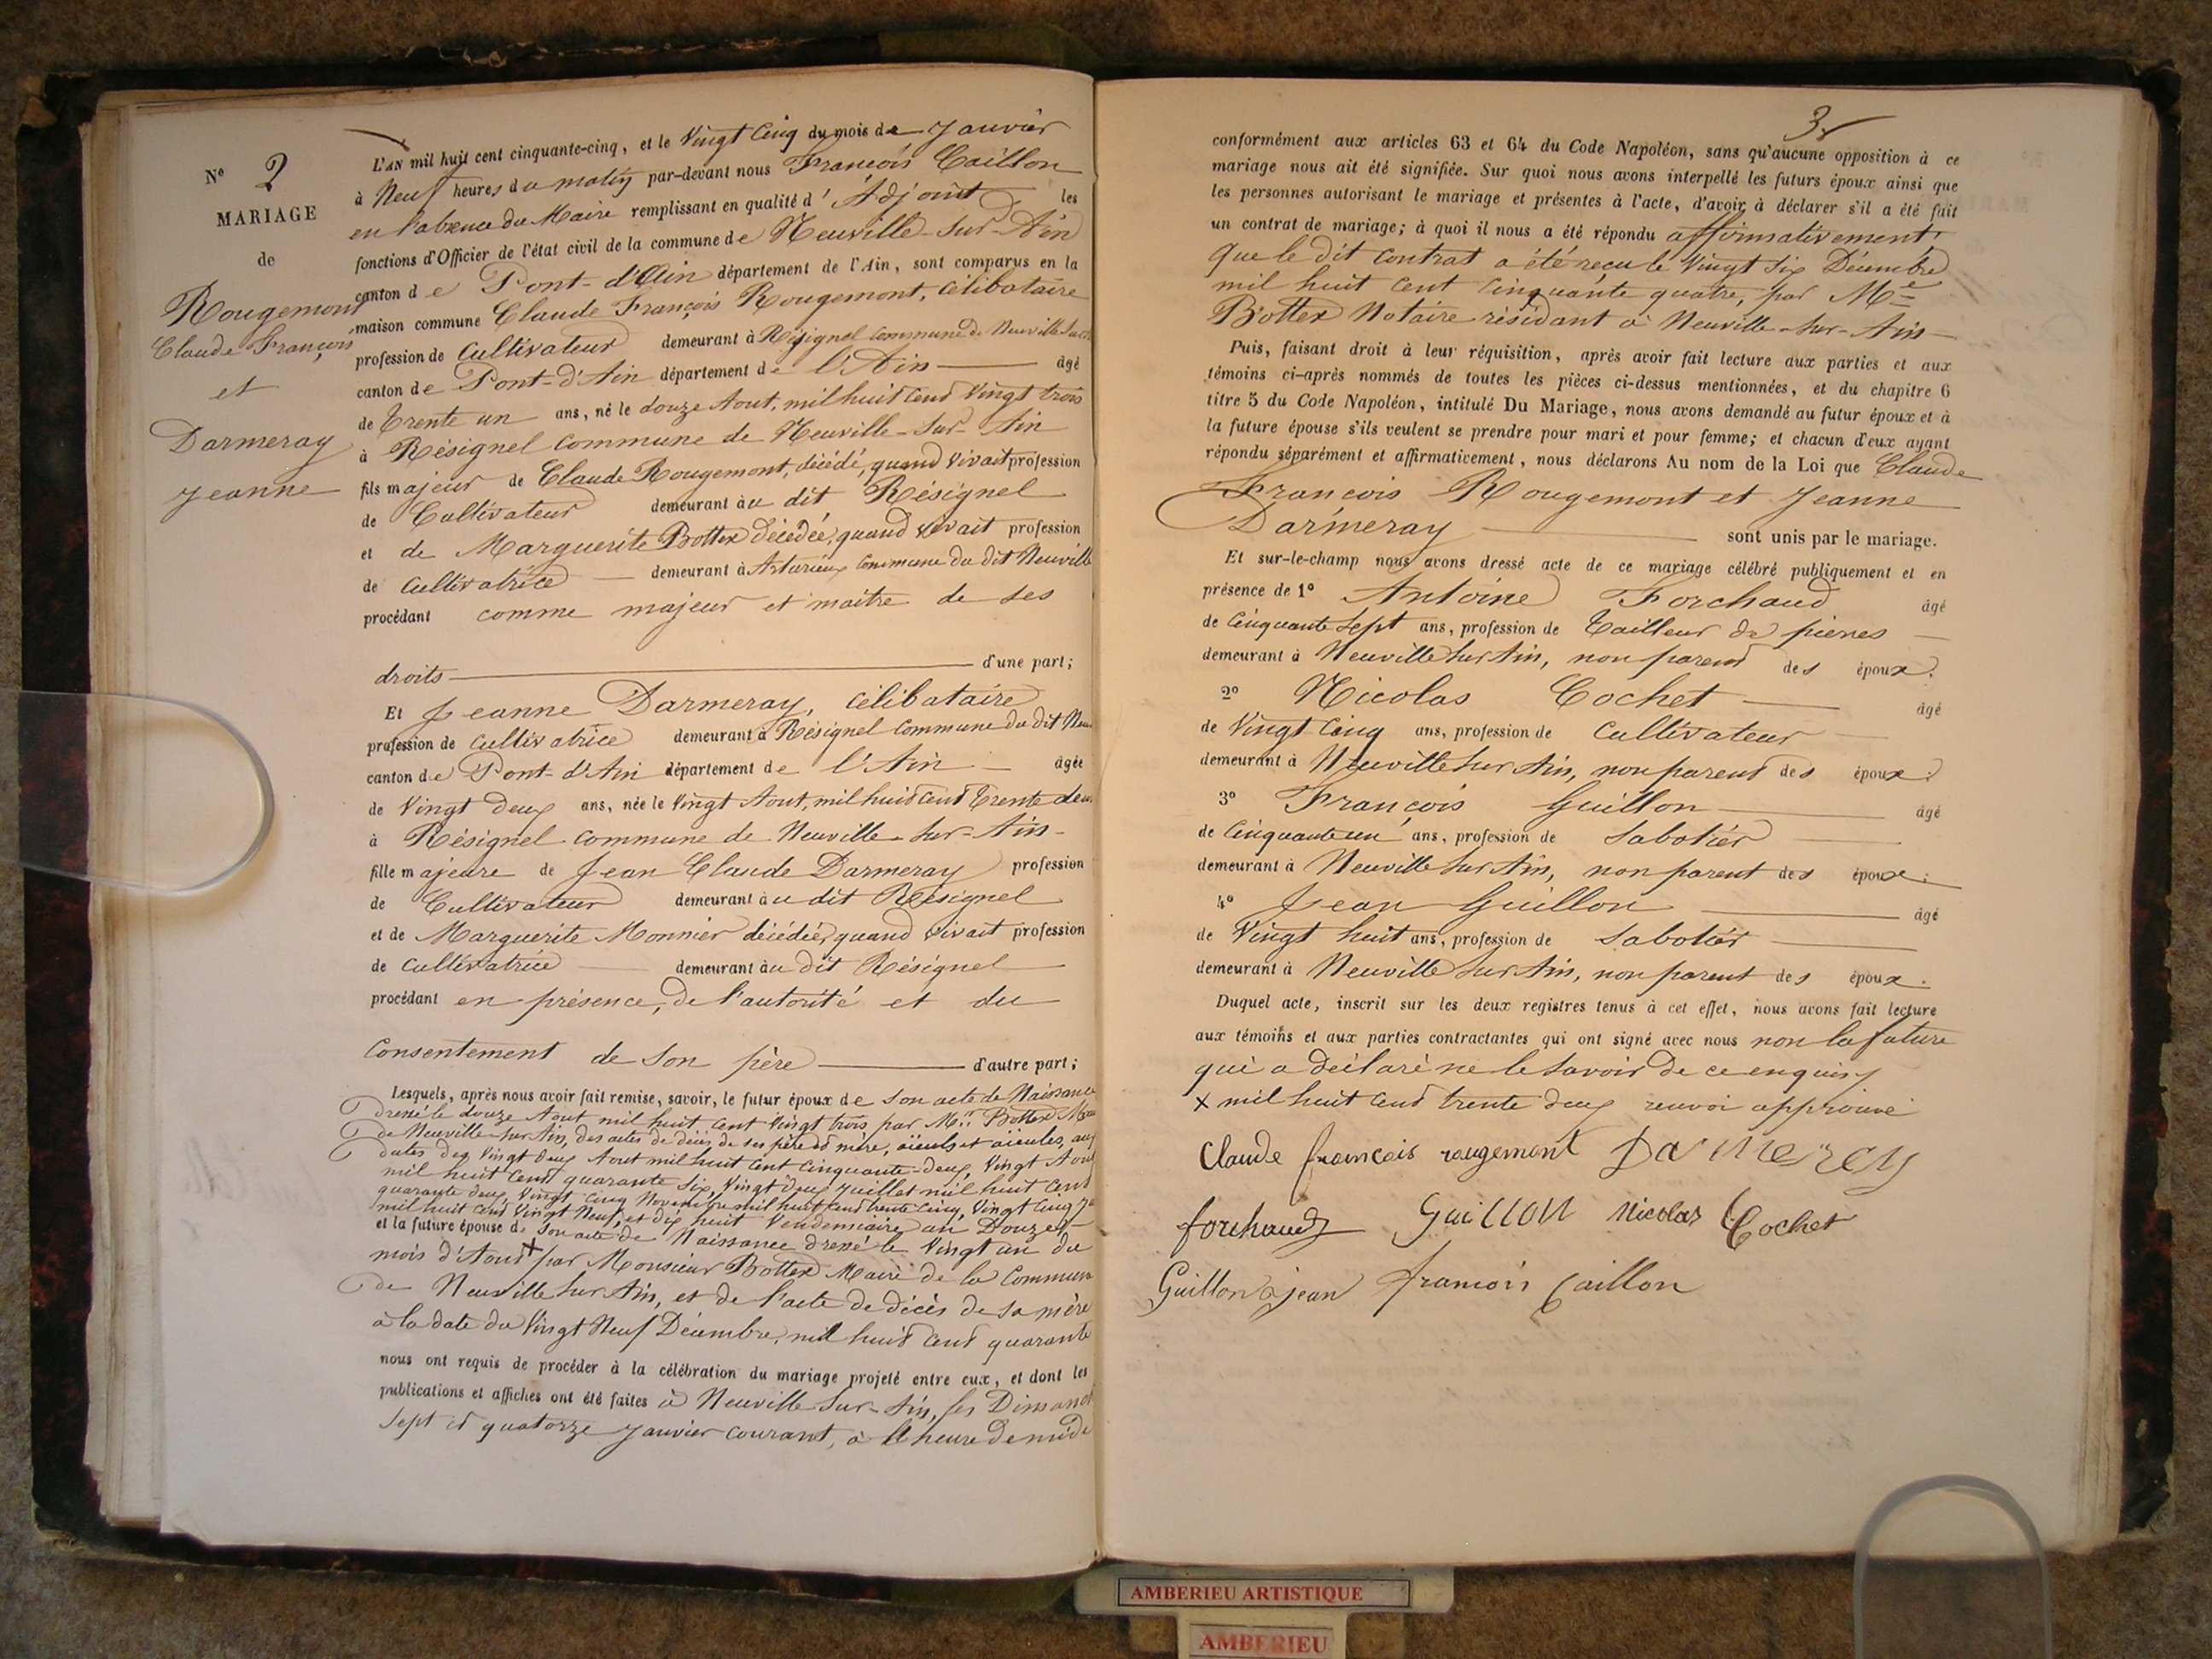 N° 2
MARIAGE
de
Rougemont
Claude François
et
Darmeray
Jeanne
L'AN mil huit cent cinquante-cinq, et le Vingt Cinq du mois de Janvier
à Neuf heures du matin par-devant nous François Caillon
en l'absence du Maire remplissant en qualité d'Adjoint les
fonctions d'Officier de l'état civil de la commune de Neuville-sur-Ain
canton de Pont-d'Ain département de l'Ain, sont comparus en la
maison commune Claude François Rougemont, célibataire
profession de Cultivateur demeurant à Résignel commune de Neuville sur
canton de Pont-d'Ain département de l'Ain âgé
de trente un ans, né le douze Aout, mil huit cent vingt trois
à Résignel commune de Neuville-sur-Ain
fils majeur de Claude Rougemont, décédé, quand vivait profession
de Cultivateur demeurant au dit Résignel
et de Marguerite Bottex décédée, quand vivait profession
de Cultivatrice demeurant à Arturieux commune du dit Neuville
procédant comme majeur et maître de ses
droits d'une part;
Et Jeanne Darmeray, célibataire
profession de cultivatrice demeurant à Résignel commune du dit Neu
canton de Pont-d'Ain département de l'Ain âgée
de Vingt deux ans, née le vingt Aout, mil huit cent trente deux
à Résignel commune de Neuville-sur-Ain
fille majeure de Jean Claude Darmeray profession
de Cultivateur demeurant au dit Résignel
et de Marguerite Monnier décédée, quand vivait profession
de cultivatrice demeurant au dit Résignel
procédant en présence, de l'autorité et du
Consentement de son père d'autre part;
Lesquels, après nous avoir fait remise, savoir, le futur époux de son acte de Naissance
dressé le douze Aout mil huit cent vingt trois par Mr Bottex Maire
de Neuville sur Ain, des actes de décès de ses père et mère, aïeuls et aïeules, aux
dates des vingt deux Aout mil huit cent cinquante-deux, vingt Aout
mil huit cent quarante six, vingt deux juillet mil huit cent
quarante deux, vingt cinq Novembre mil huit cent trente cinq, vingt cinq
mil huit cent vingt neuf, et dix huit Vendemiaire an Douze,
et la future épouse de son acte de Naissance dressé le vingt un du
mois d'Aout + par Monsieur Bottex Maire de la Commune
de Neuville sur Ain, et de l'acte de décès de sa mère
à la date du Vingt Neuf Décembre, mil huit cent quarante
nous ont requis de procéder à la célébration du mariage projeté entre eux, et dont les
publications et affiches ont été faites à Neuville-sur-Ain, les Dimanches
sept et quatorze Janvier courant, à l'heure de midi
3
conformément aux articles 63 et 64 du Code Napoléon, sans qu'aucune opposition à ce
mariage nous ait été signifiée. Sur quoi nous avons interpellé les futurs époux ainsi que
les personnes autorisant le mariage et présentes à l'acte, d'avoir à déclarer s'il a été fait
un contrat de mariage; à quoi il nous a été répondu affirmativement
que le dit contrat a été reçu le vingt six Décembre
mil huit cent cinquante quatre, par Me
Bottex Notaire résidant à Neuville-sur-Ain
Puis, faisant droit à leur réquisition, après avoir fait lecture aux parties et aux
témoins ci-après nommés de toutes les pièces ci-dessus mentionnées, et du chapitre 6
titre 5 du Code Napoléon, intitulé Du Mariage, nous avons demandé au futur époux et à
la future épouse s'ils veulent se prendre pour mari et pour femme; et chacun d'eux ayant
répondu séparément et affirmativement, nous déclarons Au nom de la Loi que Claude
François Rougemont et Jeanne
Darmeray sont unis par le mariage.
Et sur-le-champ nous avons dressé acte de ce mariage célébré publiquement et en
présence de 1° Antoine Forchaud âgé
de Cinquante sept ans, profession de Tailleur de pierres
demeurant à Neuville sur Ain, non parent des époux.
2° Nicolas Cochet âgé
de Vingt Cinq ans, profession de Cultivateur
demeurant à Neuville sur Ain, non parent des époux.
3° François Guillon âgé
de Cinquante un ans, profession de Sabotier
demeurant à Neuville sur Ain, non parent des époux.
4° Jean Guillon âgé
de Vingt huit ans, profession de Sabotier
demeurant à Neuville sur Ain, non parent des époux.
Duquel acte, inscrit sur les deux registres tenus à cet effet, nous avons fait lecture
aux témoins et aux parties contractantes qui ont signé avec nous non la future
qui a déclaré ne le savoir de ce enquis
x mil huit cent trente deux renvoi approuvé
Claude francois rougemont Darmeray
forchaud Guillon Nicolas Cochet
Guillon jean francois Caillon
AMBERIEU ARTISTIQUE
AMBERIEU